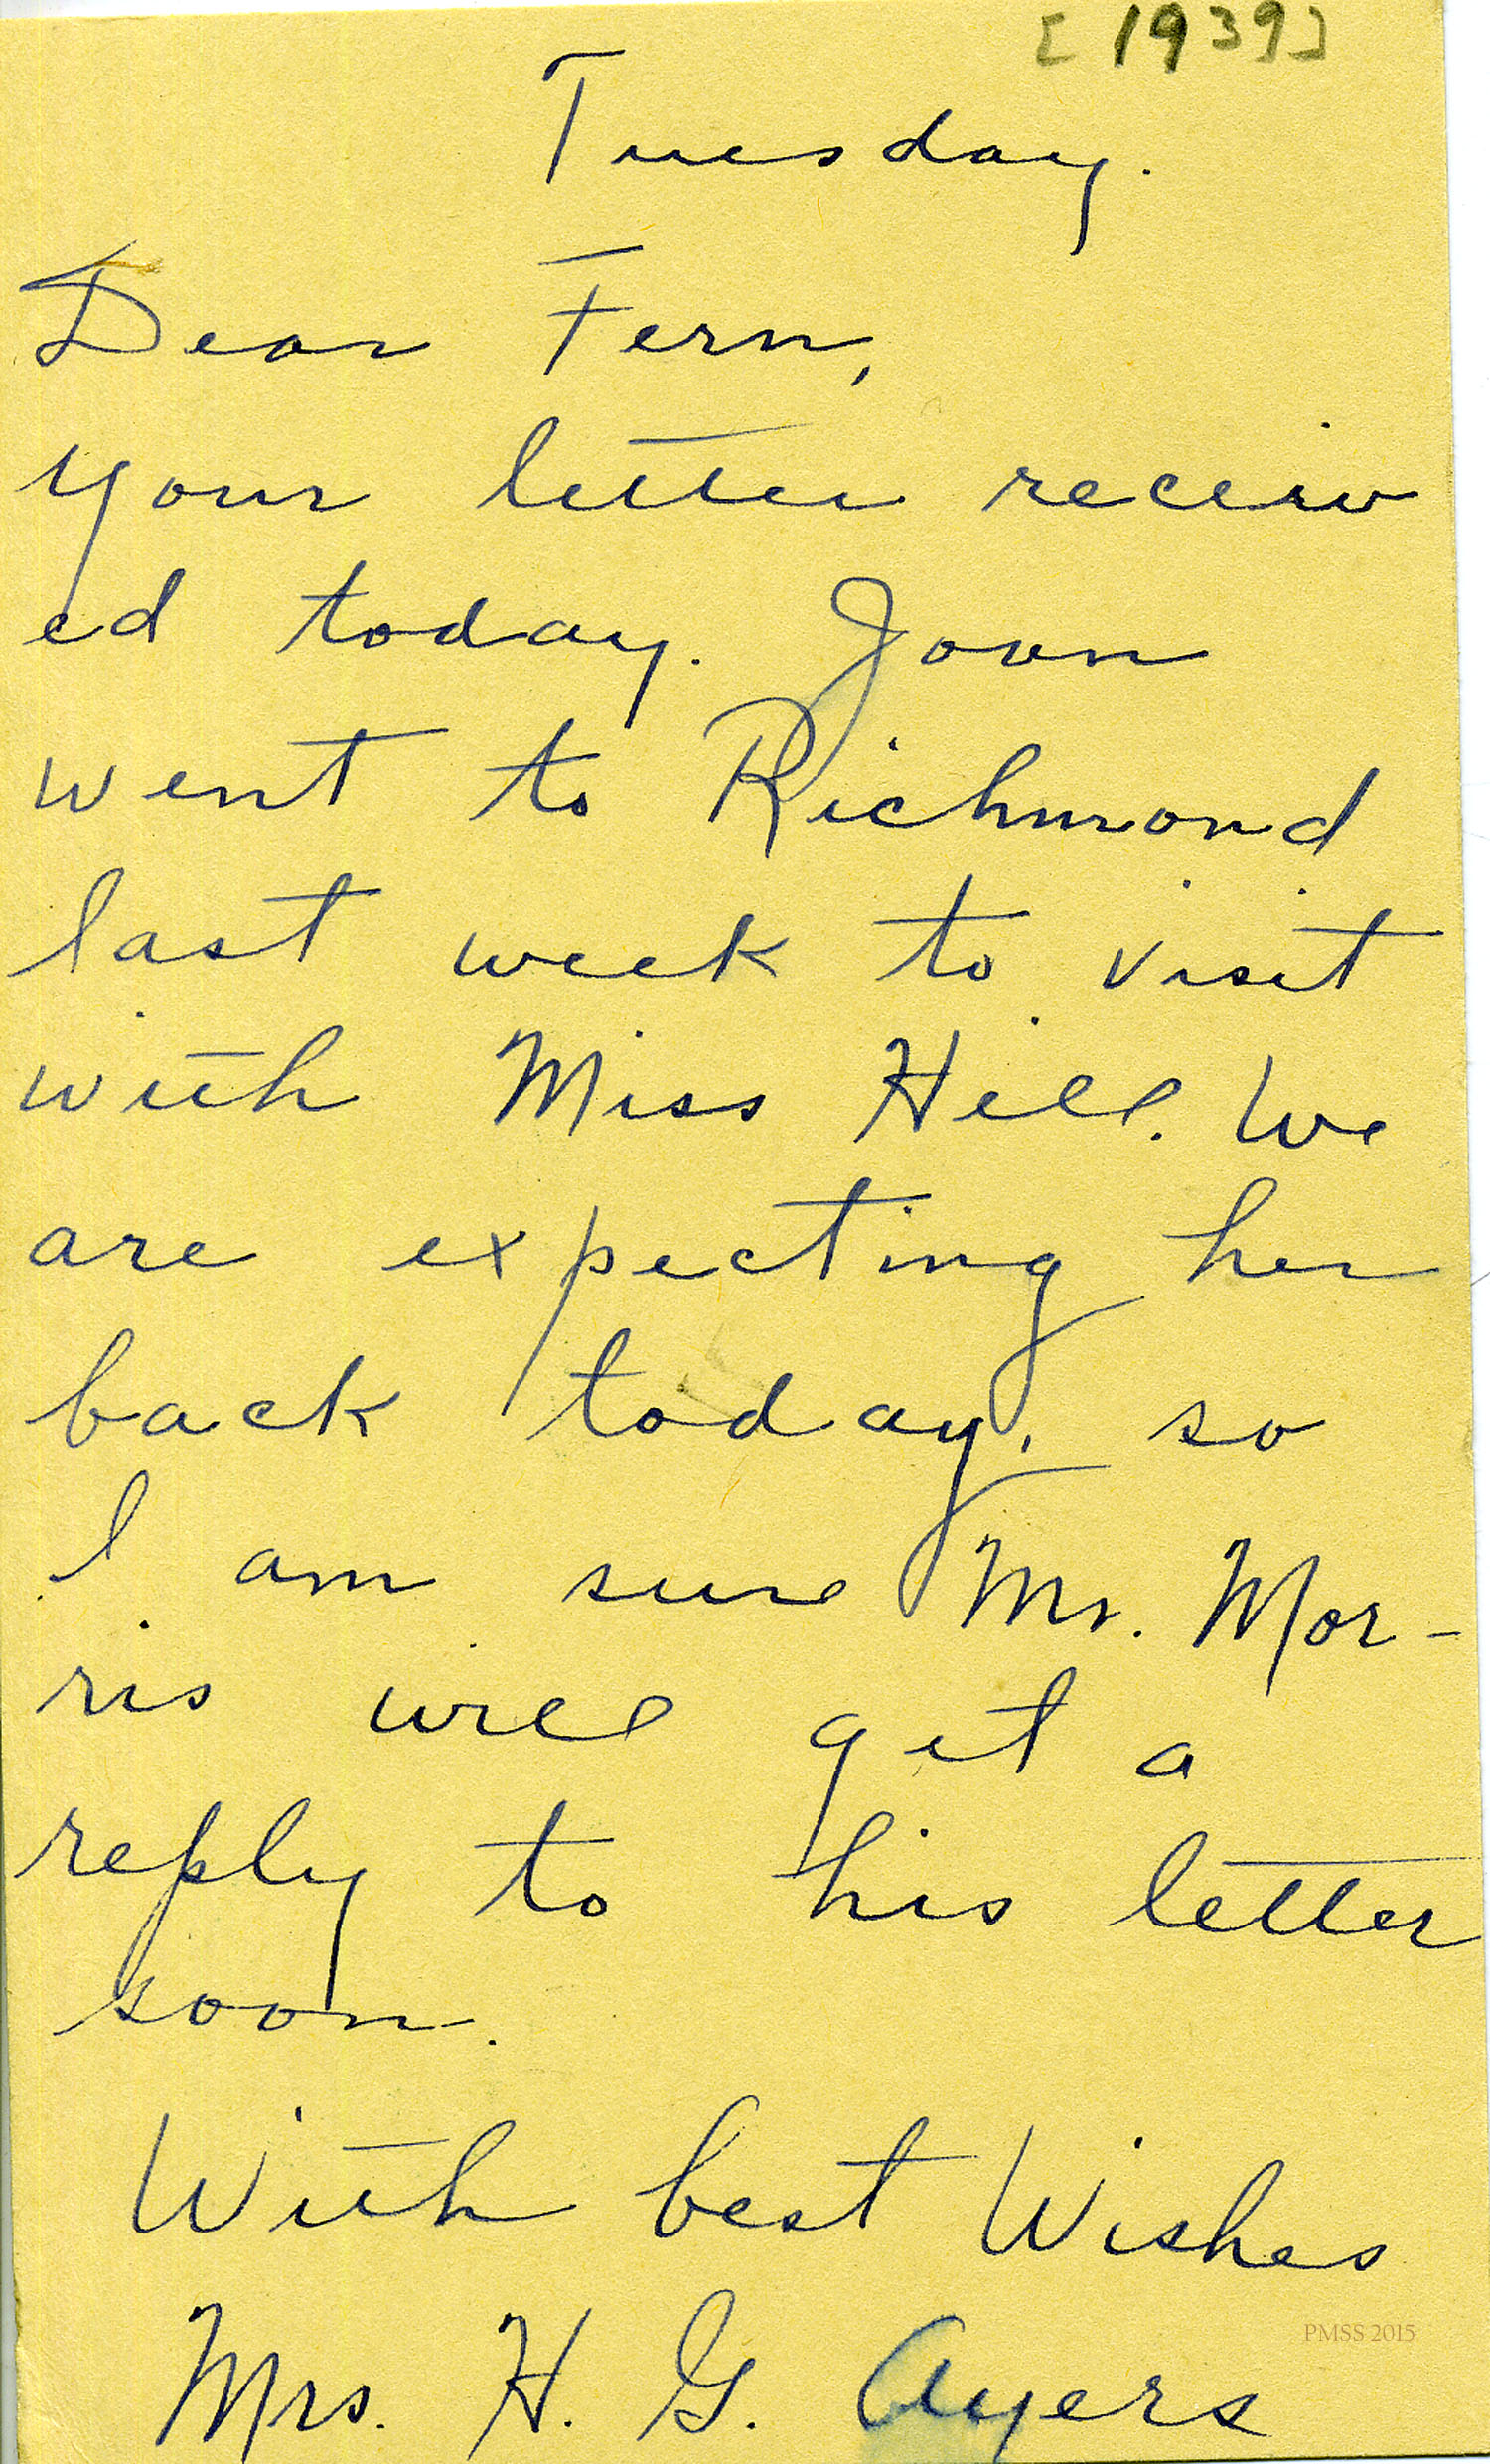 [1939]
Tuesday.
Dear Fern,
Your letter receiv
ed today. Joan
went to Richmond
last week to visit
with Miss Hill. We
are expecting her
back today, so
I am sure Mr. Mor-
ris will get a
reply to his letter
soon.
With best Wishes
PMSS 2015
Mrs. H. G. Ayers